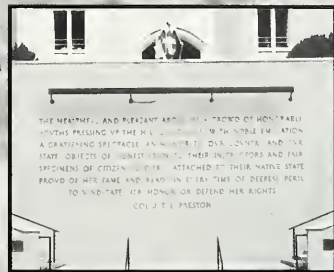 THE HEALTHFUL AND PLEASANT ABODE OF A CROWD OF HONORABLE
YOUTHS PRESSING UP THE HILL WITH NOBLE EMULATION
A GRATIFYING SPECTACLE AN HONOR TO OUR COUNTRY AND OUR
STATE OBJECTS OF HONEST PRIDE TO THEIR INSTRUCTORS AND FAIR
SPECIMENS OF CITIZEN ATTACHED TO THEIR NATIVE STATE
PROUD OF HER FAME AND READY IN EVERY TIME OF DEEPEST PERIL
TO VINDICATE HER HONOR OR DEFEND HER RIGHTS
COL J T L PRESTON